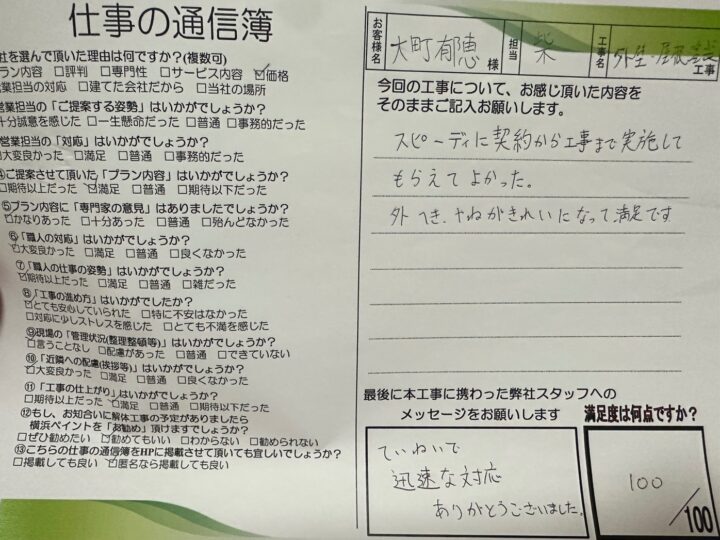 仕事の通信簿
社を選んで頂いた理由は何ですか?(複数可)
ラン内容 □評判 □専門性 □サービス内容 ☑価格
業担当の対応 □建てた会社だから □当社の場所
営業担当の「ご提案する姿勢」はいかがでしょうか?
十分誠意を感じた □一生懸命だった □普通 □事務的だった
営業担当の「対応」はいかがでしょうか?
大変良かった □満足 □普通 □事務的だった
④ご提案させて頂いた「プラン内容」はいかがでしょうか?
□期待以上だった ☑満足 □普通 □期待以下だった
⑤プラン内容に「専門家の意見」はありましたでしょうか?
☑かなりあった □十分あった □普通 □殆んどなかった
⑥「職人の対応」はいかがでしょうか?
☑大変良かった □満足 □普通 □良くなかった
⑦「職人の仕事の姿勢」はいかがでしょうか?
☑期待以上だった □満足 □普通 □雑だった
⑧「工事の進め方」はいかがでしたか?
☑とても安心していられた □特に不安はなかった
□対応に少しストレスを感じた □とても不満を感じた
⑨現場の「管理状況(整理整頓等)」はいかがでしょうか?
☑言うことなし □配慮があった □普通 □できていない
⑩「近隣への配慮(挨拶等)」はいかがでしょうか?
☑大変良かった □満足 □普通 □良くなかった
⑪「工事の仕上がり」はいかがでしょうか?
□期待以上だった ☑満足 □普通 □期待以下だった
⑫もし、お知合いに解体工事の予定がありましたら
横浜ペイントを「お勧め」頂けますでしょうか?
□ぜひ勧めたい ☑勧めてもいい □わからない □勧められない
⑬こちらの仕事の通信簿をHPに掲載させて頂いても宜しいでしょうか?
□掲載しても良い ☑匿名なら掲載しても良い
お客様名 大町有恵 様 担当 柴 工事名 外壁・屋根塗装 工事
今回の工事について、お感じ頂いた内容を
そのままご記入お願いします。
スピーディに契約から工事まで実施して
もらえてよかった。
外へき、やねがきれいになって満足です
最後に本工事に携わった弊社スタッフへの
メッセージをお願いします
ていねいで
迅速な対応
ありがとうございました。
満足度は何点ですか?
100
/100